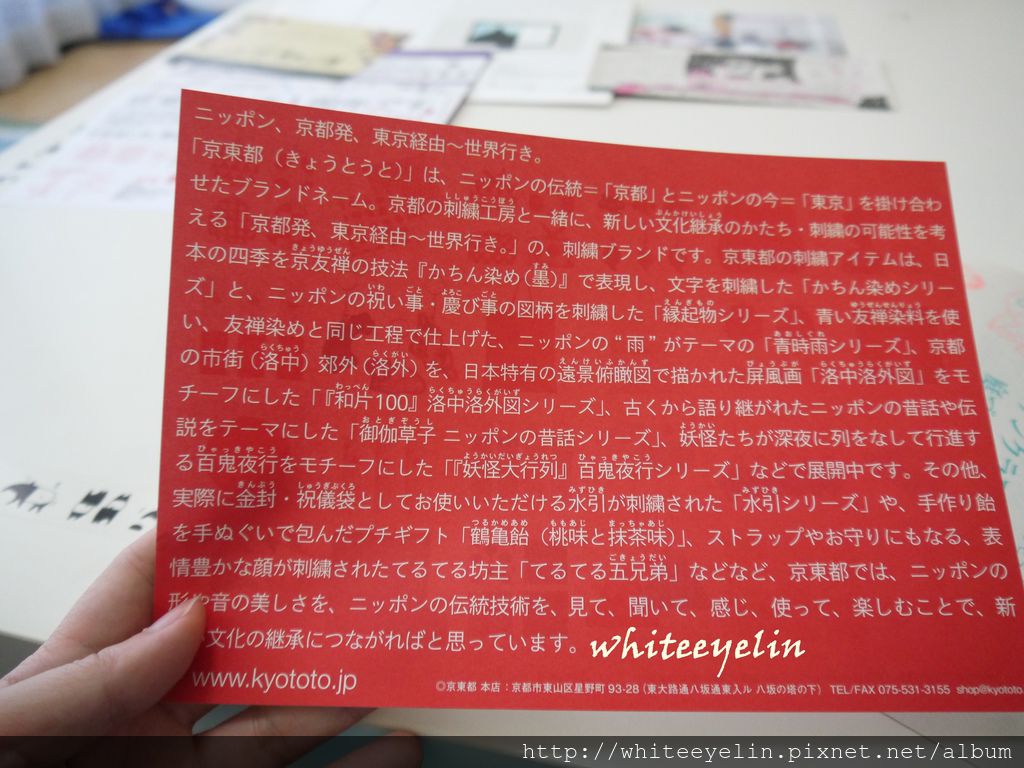 ニッポン、京都発、東京経由〜世界行き。
「京東都（きょうとうと）」は、ニッポンの伝統＝「京都」とニッポンの今＝「東京」を掛け合わ
せたブランドネーム。京都の刺繍工房と一緒に、新しい文化継承のかたち・刺繍の可能性を考
える「京都発、東京経由〜世界行き。」の、刺繍ブランドです。京東都の刺繍アイテムは、日
本の四季を京友禅の技法『かちん染め（墨）』で表現し、文字を刺繍した「かちん染めシリー
ズ」と、ニッポンの祝い事・慶び事の図柄を刺繍した「縁起物シリーズ」、青い友禅染料を使
い、友禅染めと同じ工程で仕上げた、ニッポンの“雨”がテーマの「青時雨シリーズ」、京都
の市街（洛中）郊外（洛外）を、日本特有の遠景俯瞰図で描かれた屏風画「洛中洛外図」をモ
チーフにした「『和片100』洛中洛外図シリーズ」、古くから語り継がれたニッポンの昔話や伝
説をテーマにした「御伽草子 ニッポンの昔話シリーズ」、妖怪たちが深夜に列をなして行進す
る百鬼夜行をモチーフにした「『妖怪大行列』百鬼夜行シリーズ」などで展開中です。その他、
実際に金封・祝儀袋としてお使いいただける水引が刺繍された「水引シリーズ」や、手作り飴
を手ぬぐいで包んだプチギフト「鶴亀飴（桃味と抹茶味）」、ストラップやお守りにもなる、表
情豊かな顔が刺繍されたてるてる坊主「てるてる五兄弟」などなど、京東都では、ニッポンの
形や音の美しさを、ニッポンの伝統技術を、見て、聞いて、感じ、使って、楽しむことで、新
い文化の継承につながればと思っています。
whiteeyelin
www.kyototo.jp
◎京東都 本店：京都市東山区星野町 93-28（東大路通八坂通東入ル 八坂の塔の下） TEL/FAX 075-531-3155 shop@kyototo.
http://whiteeyelin.pixnet.net/album